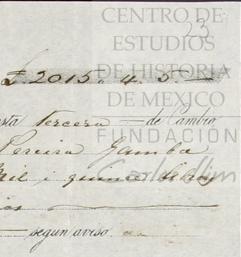 CENTRO DE
23
ESTUDIOS
DE HISTORIA
£ 2015. 4. 5
DE MEXICO
esta Tercera de Cambio
FUNDACIÓN
Pereira Gamba
mil i quince
segun aviso